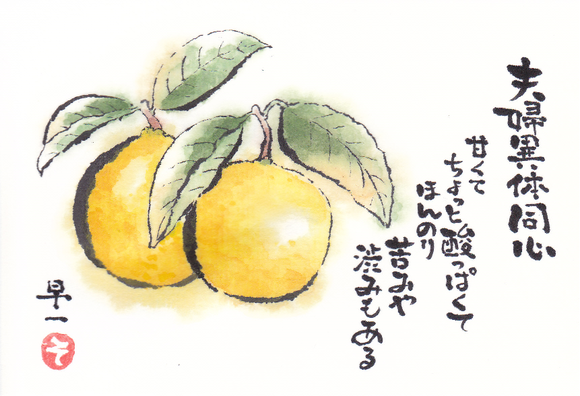 夫婦異体同心
甘くて
ちょっと酸っぱくて
ほんのり
苦みや
渋みもある
早一
そ